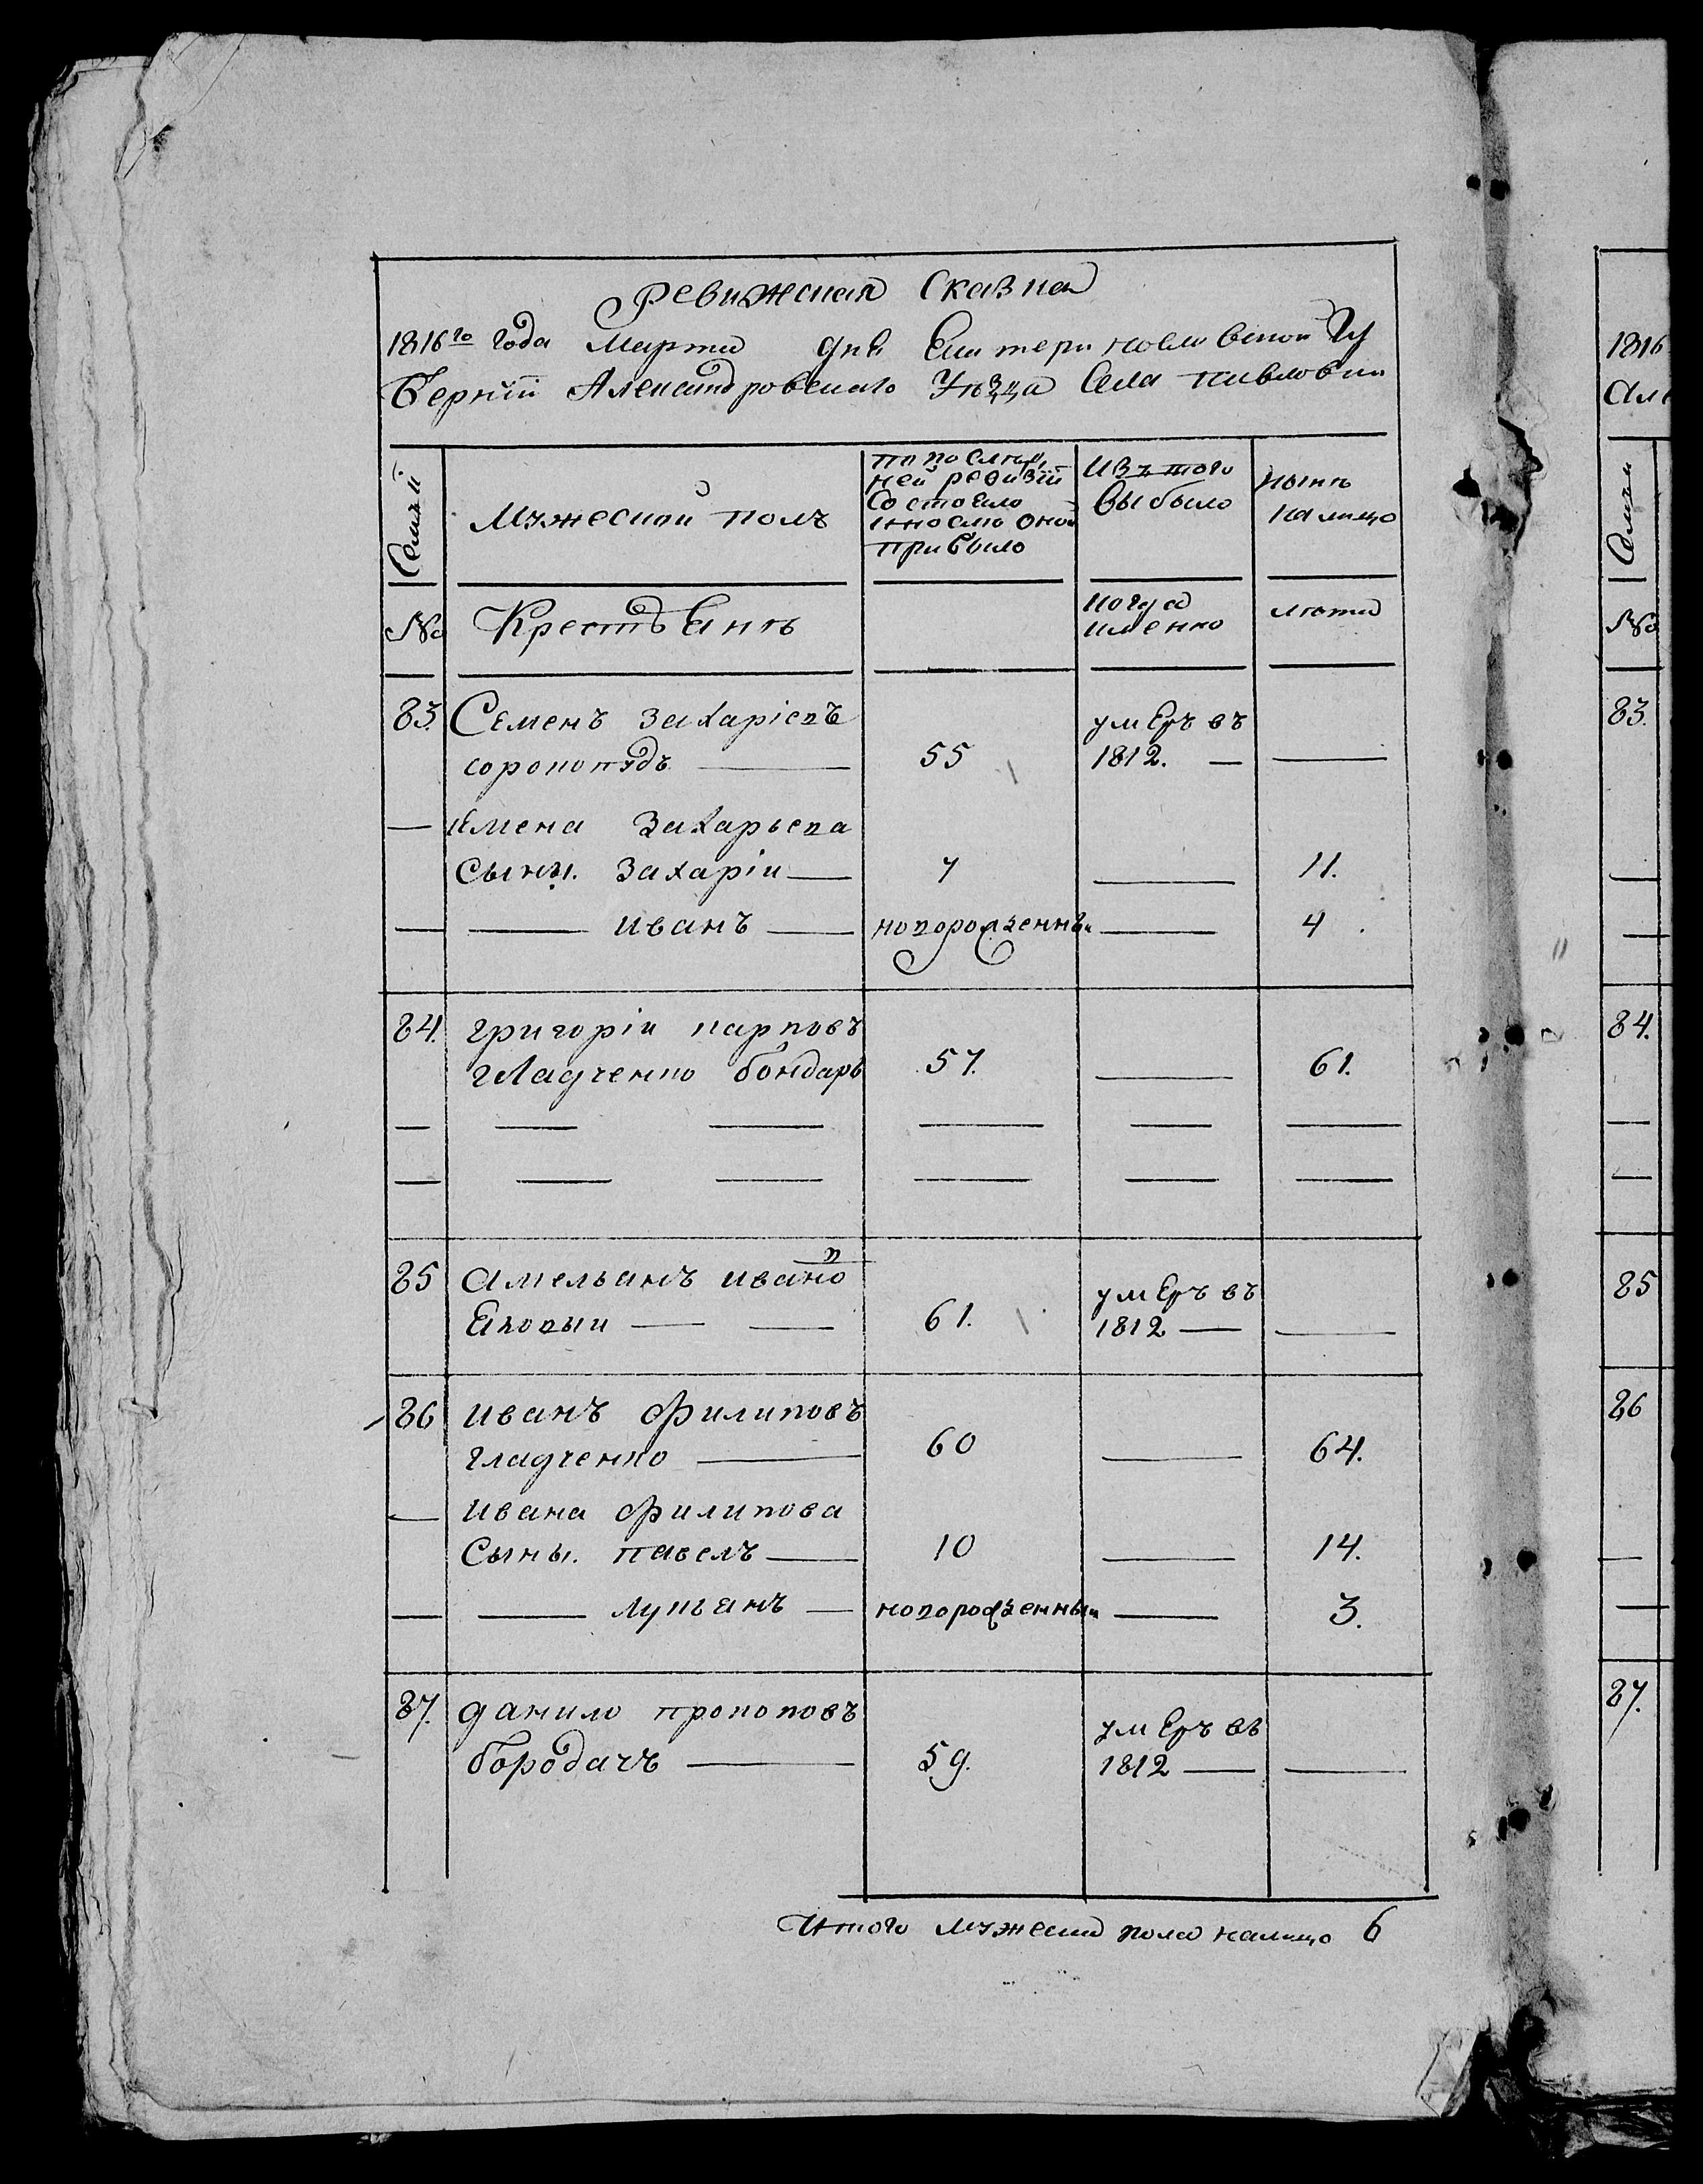 Ревижская Сказка
1816го года Марта дня Екатеринославской Гу
Бернїи Александровскаго Уѣзда Села павловки
Семьи
Мужеской полъ
по послѣд
ней ревизїи
Состояло
и послѣ оной
прибыло
Изъ того
выбыло
нынѣ
на лицо
№
Крестьянѣ
когда
именно
лѣта
83. Семенъ Захарїевъ
сорокопудъ — 55 умеръ въ 1812. — —
— Семена Захарьева
Сыны. Захарїи — 7 — 11.
— — иванъ — новорожденныи — 4
84. григорїи карповъ
гладченко бондарь 57. — 61.
— — — — — —
— — — — — —
85 Амельянъ ивановъ
— — 61. умеръ въ 1812 — —
86 иванъ филиповъ
гладченко — 60 — 64.
— ивана филипова
Сыны. павелъ — 10 — 14.
— — лукьянъ — новорожденныи — 3.
87. данило прокоповъ
бородачъ — 59. умеръ въ 1812 — —
Итого мужеска пола налицо 6
1816
Але
Семьи
№
83.
—
—
84.
—
—
85
86
—
—
87.